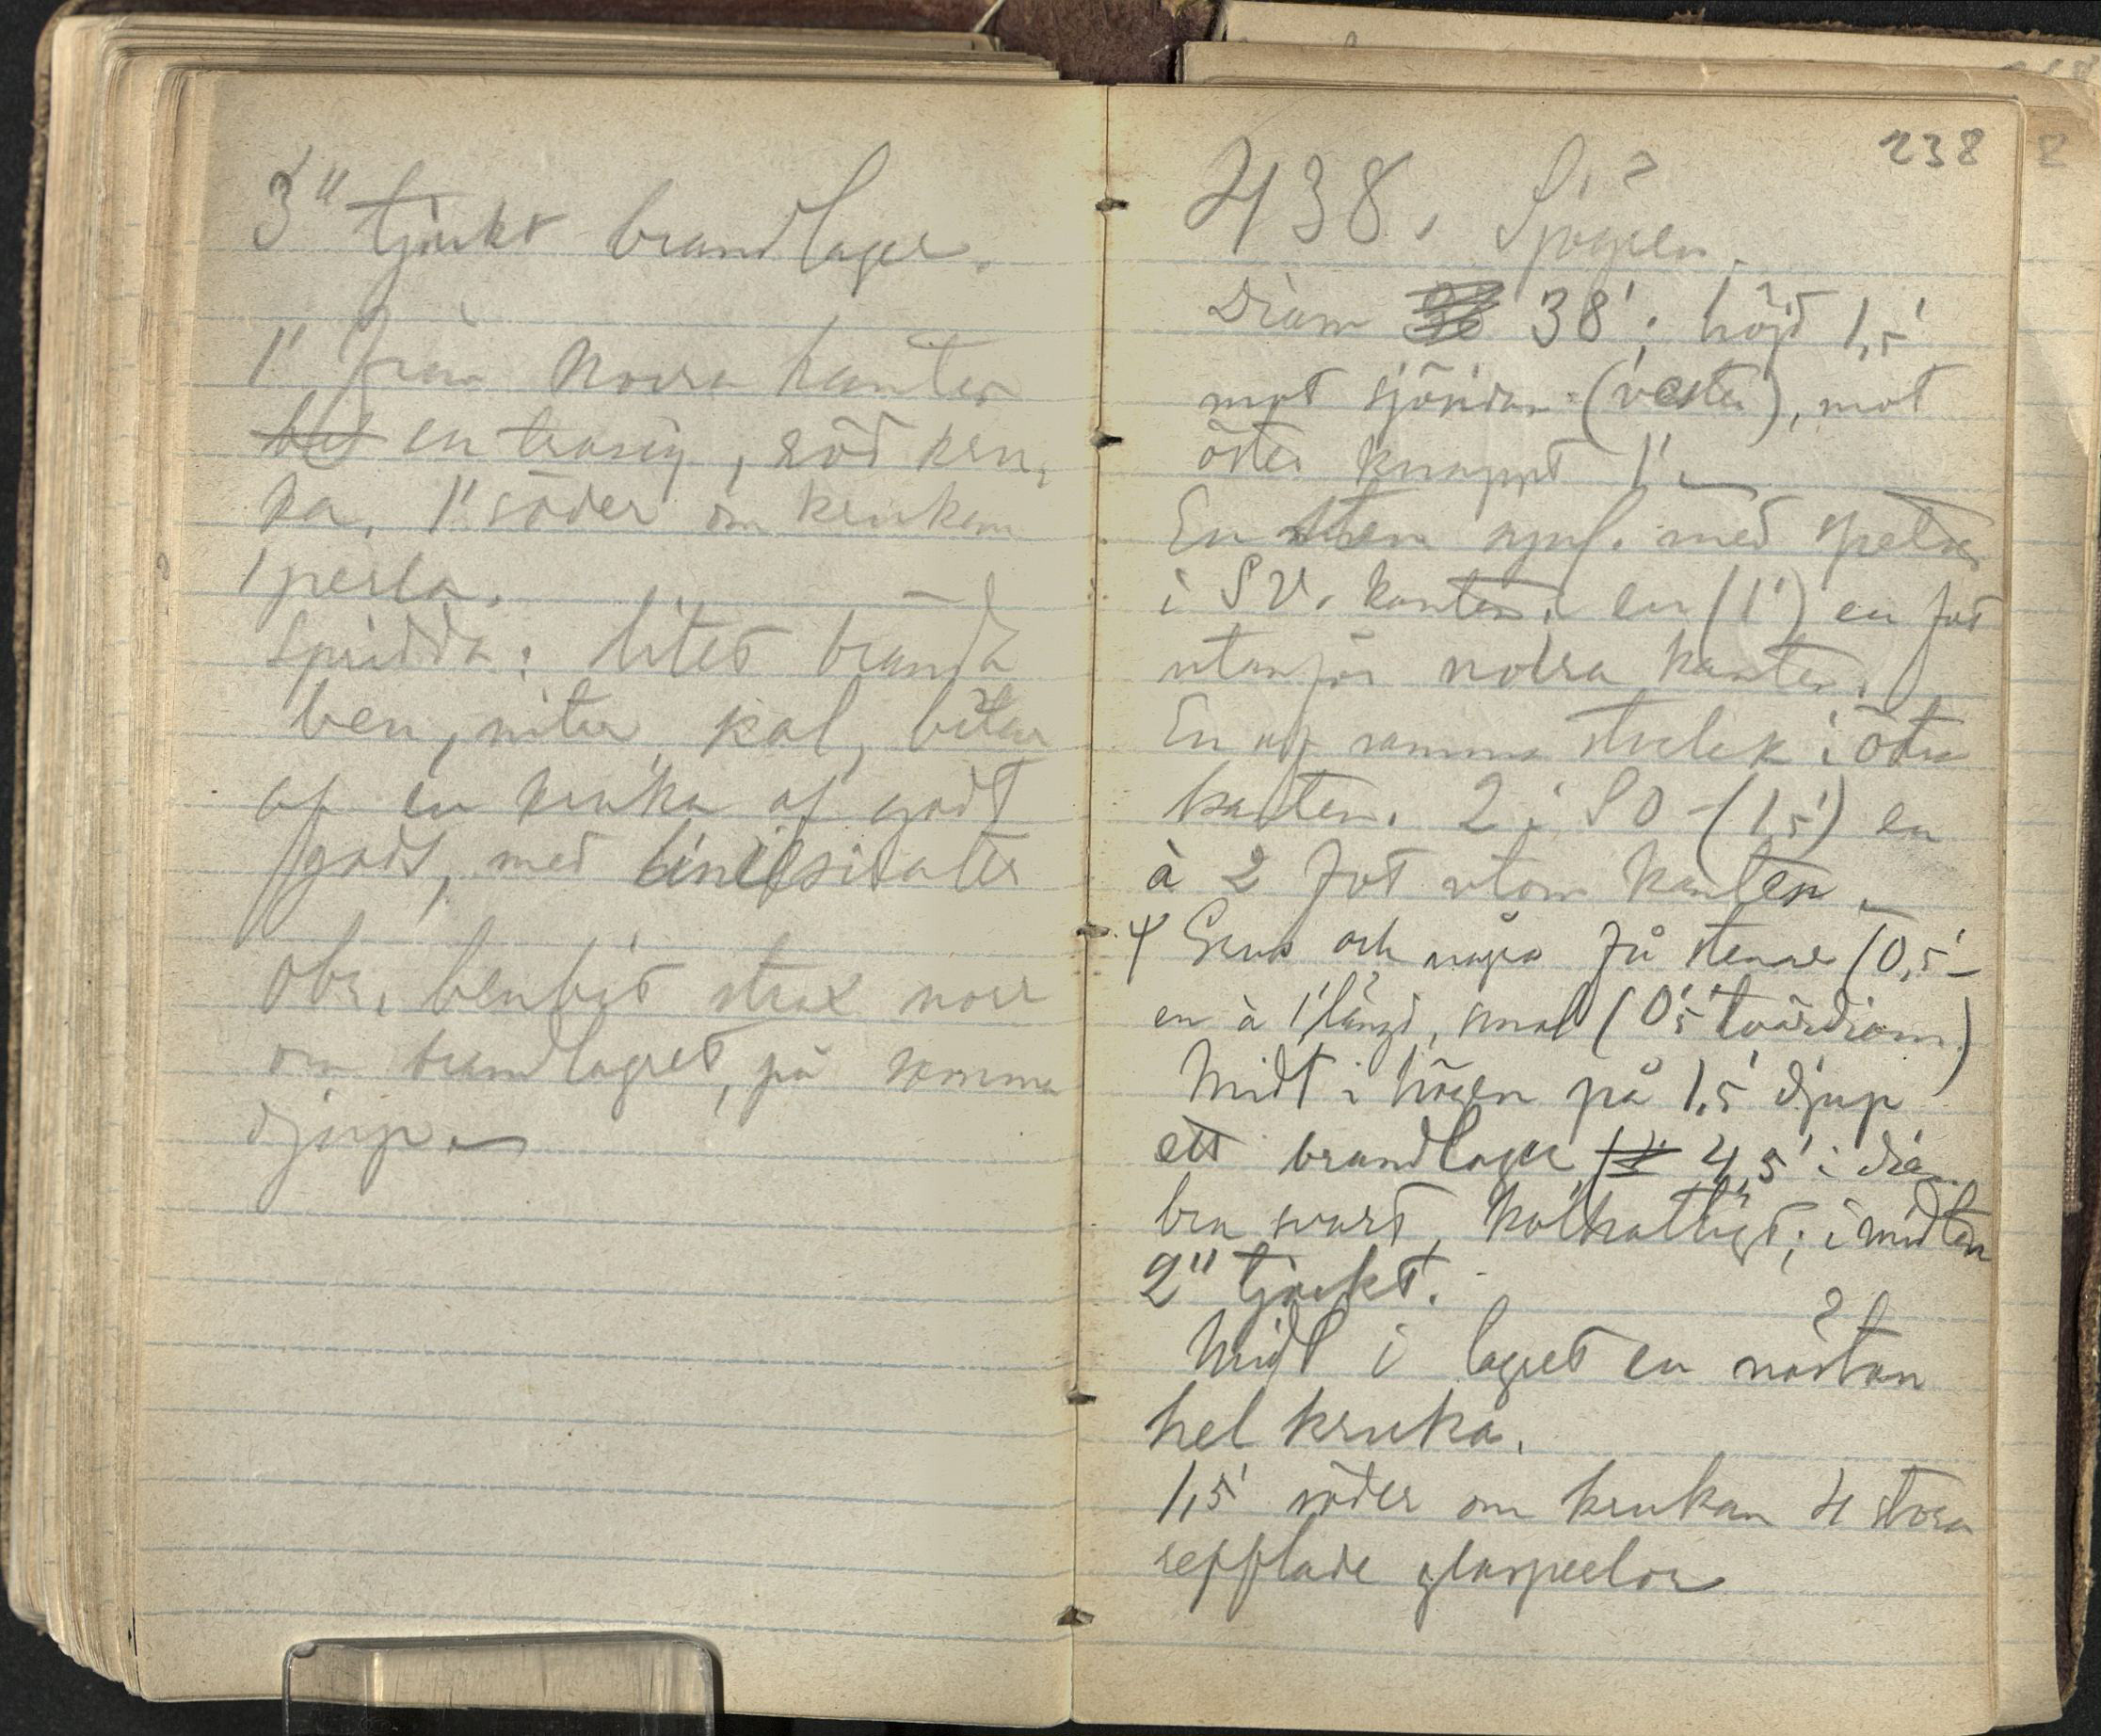 3" tjockt brandlager.
1' från norra kanten
bit en trasig, röd kru-
ka. 1' söder om krukan
1 perla.
Spridda: litet brända
ben, nitar, kol, bitar
af en kruka af godt
gods, med
Obs. benbit strax norr
om brandlagret, på samma
djup.
238
438.
Diam 38'; höjd 1,5'
mot sjösidan (vester), mot
öster knappt 1'
En sten med spetsen
i SV. kanten. en (1') en fot
utanför norra kanten.
En af samma storlek i östra
kanten. 2 i SO (1,5') en
à 2 fot utom kanten.
Grus och några få stenar (0,5'-
en à 1' längd, smal (0,5' tvärdiam.)
Midt i högen på 1,5' djup
ett brandlager 4,5' i dia.
bra svart, kolhaltigt; i midten
2" tjockt.
Midt i lagret en nästan
hel kruka.
1,5' söder om krukan 4 stora
refflade glasperlor